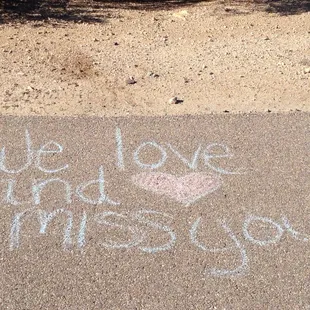 We love
and
miss you